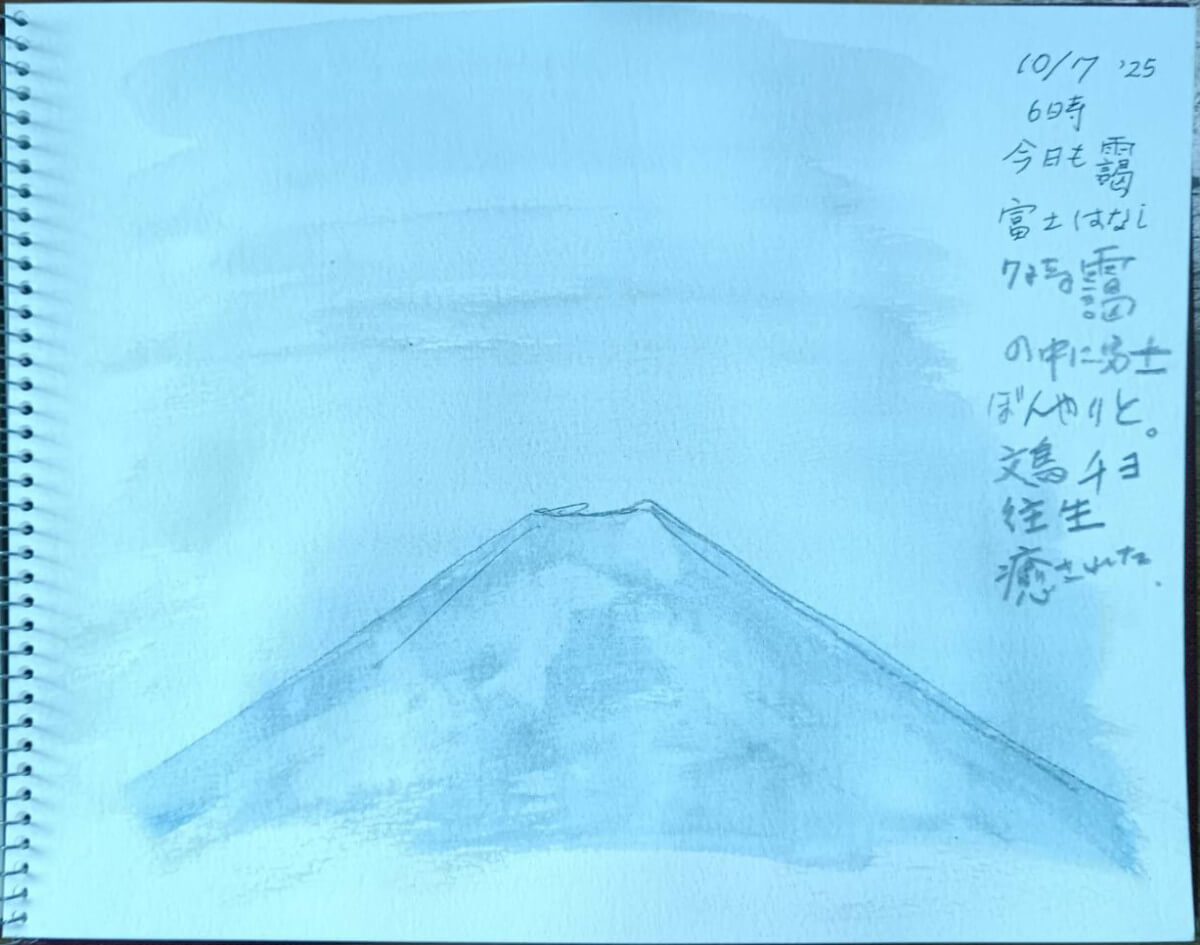 10/7 '25
6時
今日も靄
富士はなし
7時靄
の中に富士
ぼんやりと。
文鳥チヨ
往生
癒された.